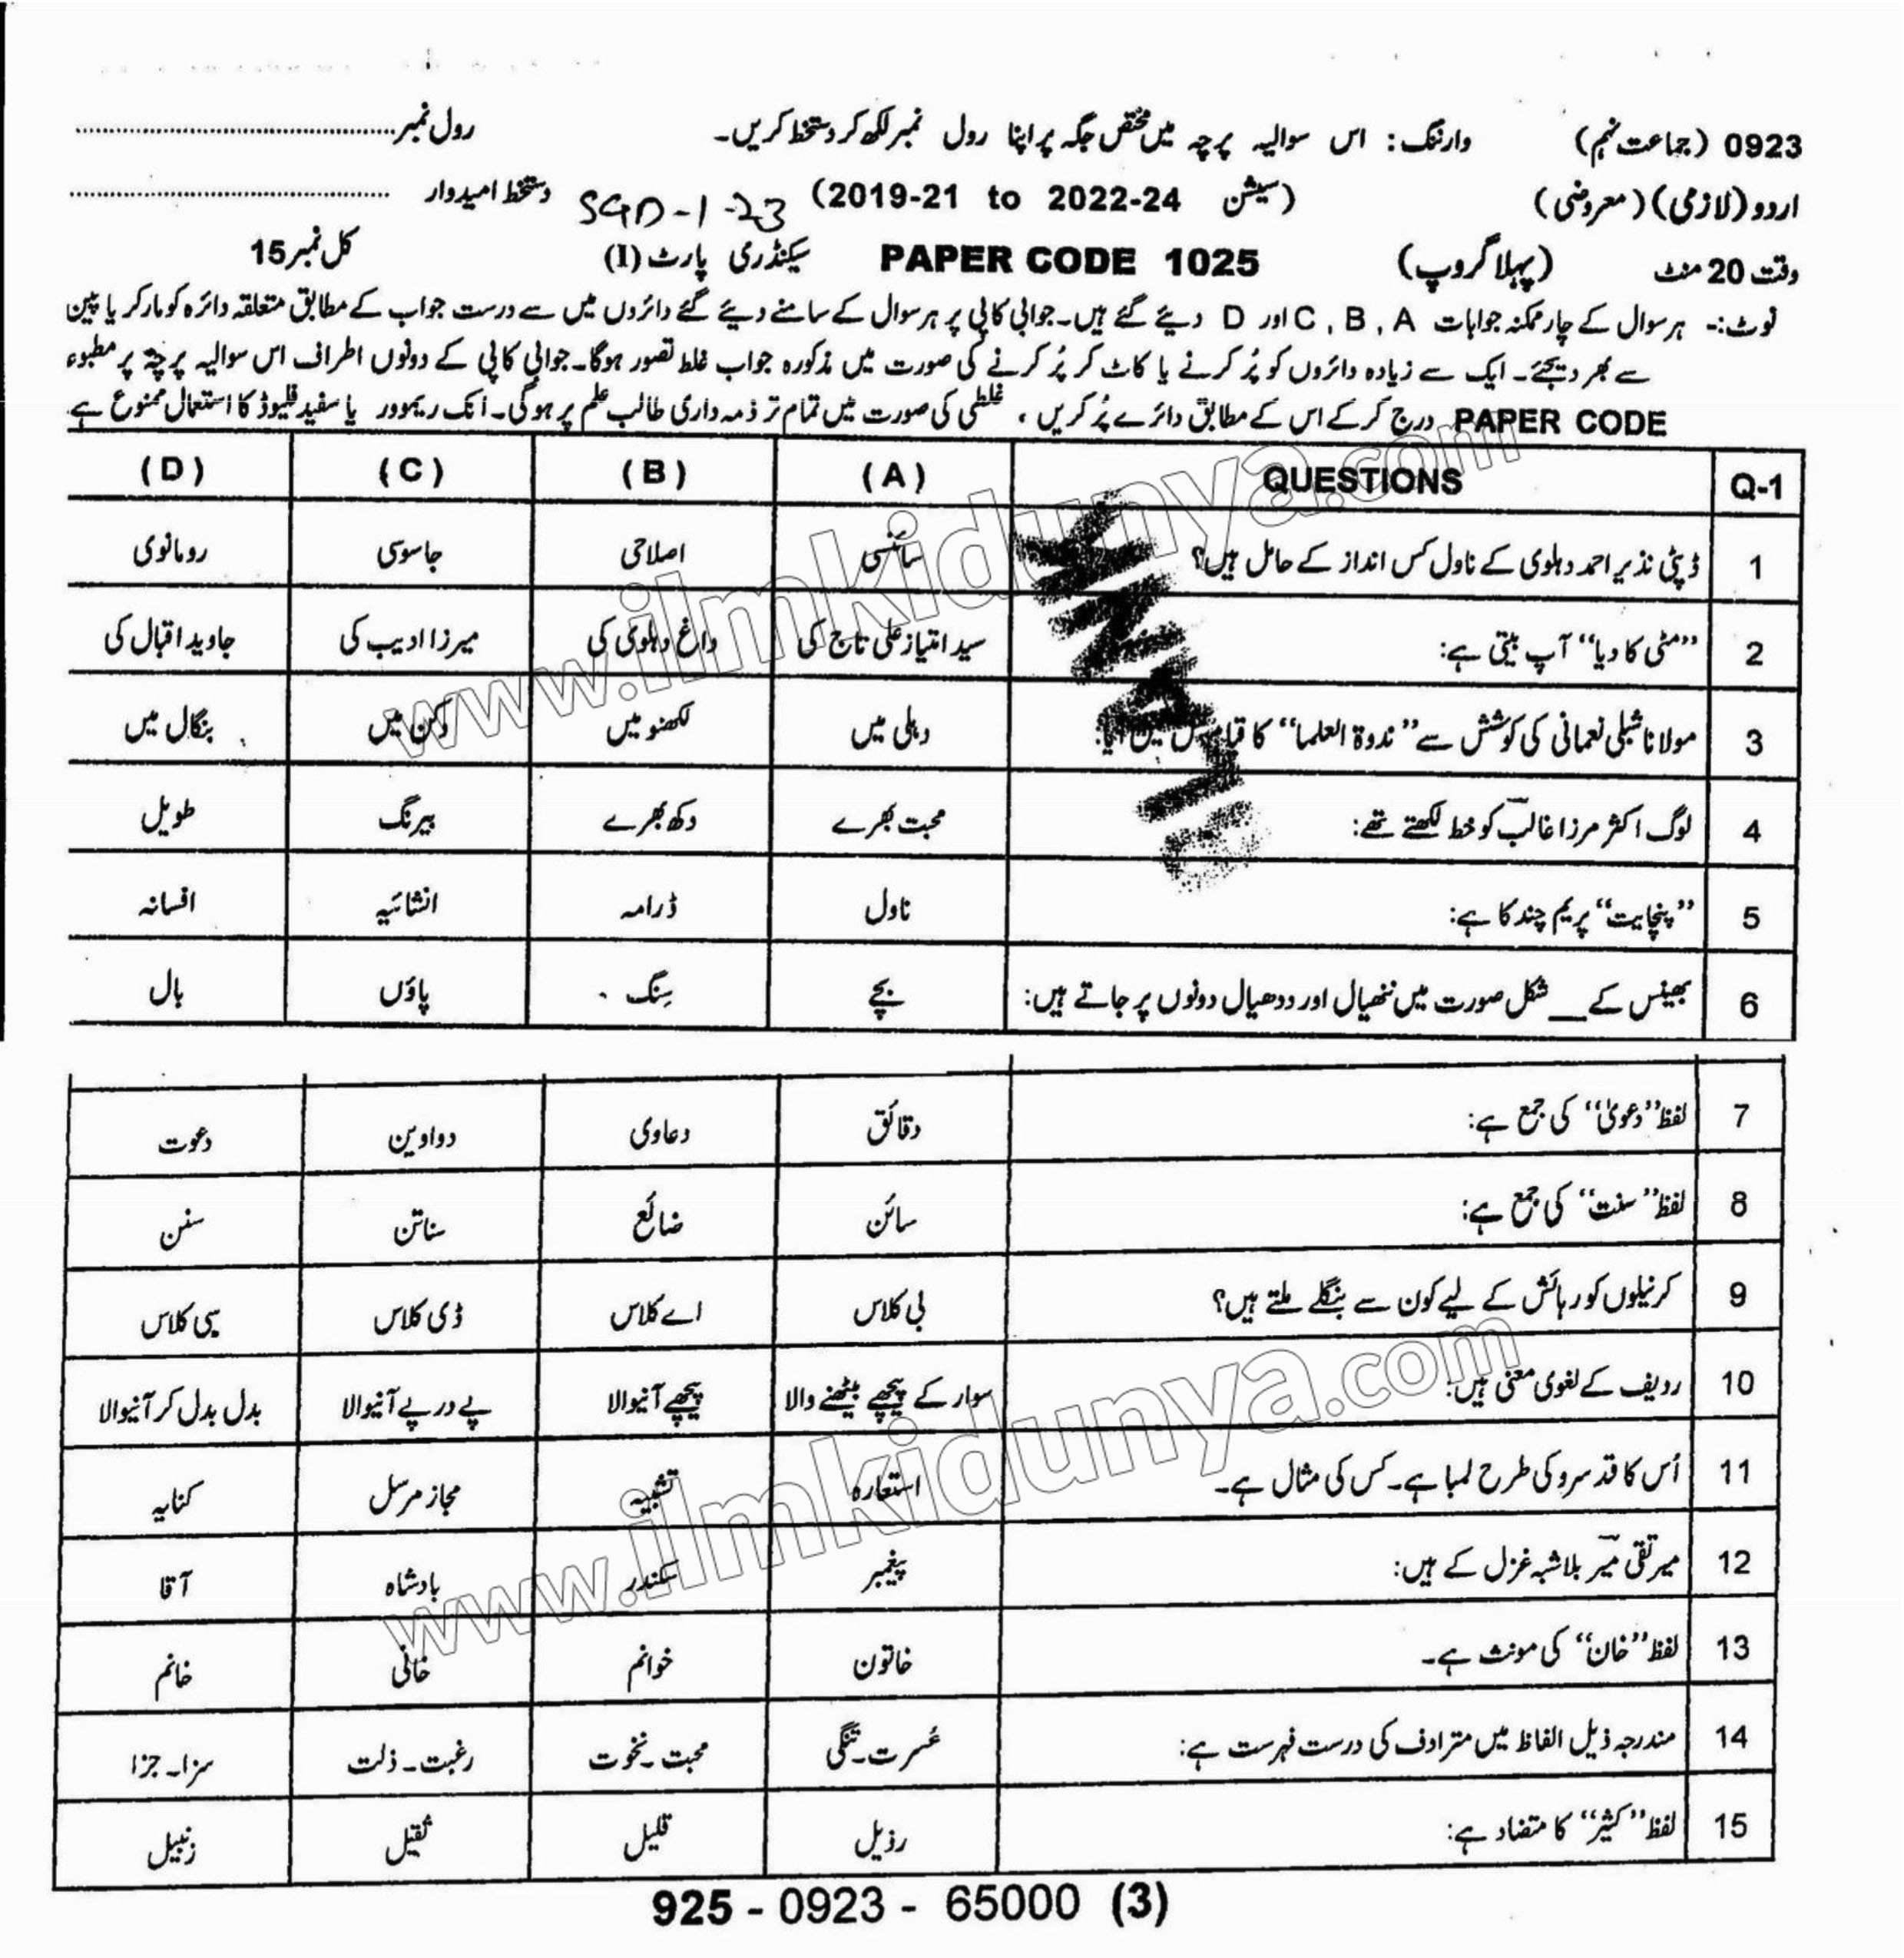 0923 (جماعت نہم) وارننگ: اس سوالیہ پرچہ میں مختص جگہ پر اپنا رول نمبر لکھ کر دستخط کریں۔ رول نمبر
اردو (لازمی) (معروضی) (سیشن 2019-21 to 2022-24) SGD-1-23 دستخط امیدوار
وقت 20 منٹ (پہلا گروپ) PAPER CODE 1025 سیکنڈری پارٹ (I) کل نمبر 15
نوٹ:- ہر سوال کے چار ممکنہ جوابات A , B , C اور D دیئے گئے ہیں۔ جوابی کاپی پر ہر سوال کے سامنے دیئے گئے دائروں میں سے درست جواب کے مطابق متعلقہ دائرہ کو مارکر یا پین
سے بھر دیجئے۔ ایک سے زیادہ دائروں کو پُر کرنے یا کاٹ کر پُر کرنے کی صورت میں مذکورہ جواب غلط تصور ہوگا۔ جوابی کاپی کے دونوں اطراف اس سوالیہ پرچہ پر مطبوعہ
PAPER CODE درج کر کے اس کے مطابق دائرے پُر کریں ، غلطی کی صورت میں تمام تر ذمہ داری طالب علم پر ہوگی۔ انک ریموور یا سفید فلیوڈ کا استعمال ممنوع ہے
Q-1 QUESTIONS (A) (B) (C) (D)
1 ڈپٹی نذیر احمد دہلوی کے ناول کس انداز کے حامل ہیں؟ سائنسی اصلاحی جاسوسی رومانوی
2 ”مٹی کا دیا“ آپ بیتی ہے: سید امتیاز علی تاج کی داغ دہلوی کی میرزا ادیب کی جاوید اقبال کی
3 مولانا شبلی نعمانی کی کوشش سے ”ندوۃ العلما“ کا دہلی میں لکھنو میں دکن میں بنگال میں
4 لوگ اکثر مرزا غالبؔ کو خط لکھتے تھے: محبت بھرے دکھ بھرے بیرنگ طویل
5 ”پنچایت“ پریم چند کا ہے: ناول ڈرامہ انشائیہ افسانہ
6 بھینس کے __ شکل صورت میں ننھیال اور ددھیال دونوں پر جاتے ہیں: بچے سِنگ پاؤں بال
7 لفظ ”دعویٰ“ کی جمع ہے: دقائق دعاوی دواوین دعوت
8 لفظ ”سنت“ کی جمع ہے: سائن ضائع سناتن سنن
9 کرنیلوں کو رہائش کے لیے کون سے بنگلے ملتے ہیں؟ بی کلاس اے کلاس ڈی کلاس سی کلاس
10 ردیف کے لغوی معنی ہیں: سوار کے پیچھے بیٹھنے والا پیچھے آنیوالا پے در پے آنیوالا بدل بدل کر آنیوالا
11 اُس کا قد سرو کی طرح لمبا ہے۔ کس کی مثال ہے۔ استعارہ تشبیہ مجاز مرسل کنایہ
12 میر تقی میرؔ بلاشبہ غزل کے ہیں: پیغمبر سکندر بادشاہ آقا
13 لفظ ”خان“ کی مونث ہے۔ خاتون خوانم خانی خانم
14 مندرجہ ذیل الفاظ میں مترادف کی درست فہرست ہے: عُسرت۔تنگی محبت۔نخوت رغبت۔ذلت سزا۔جزا
15 لفظ ”کثیر“ کا متضاد ہے: رذیل قلیل ثقیل زنبیل
925 - 0923 - 65000 (3)
www.ilmkidunya.com
www.ilmkidunya.com